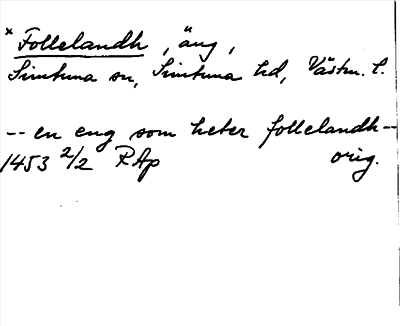 * Follelandh, äng,
Simtuna sn, Simtuna hd, Västm. l.
-- en eng som heter follelandh --
1453 2/2 RAp orig.